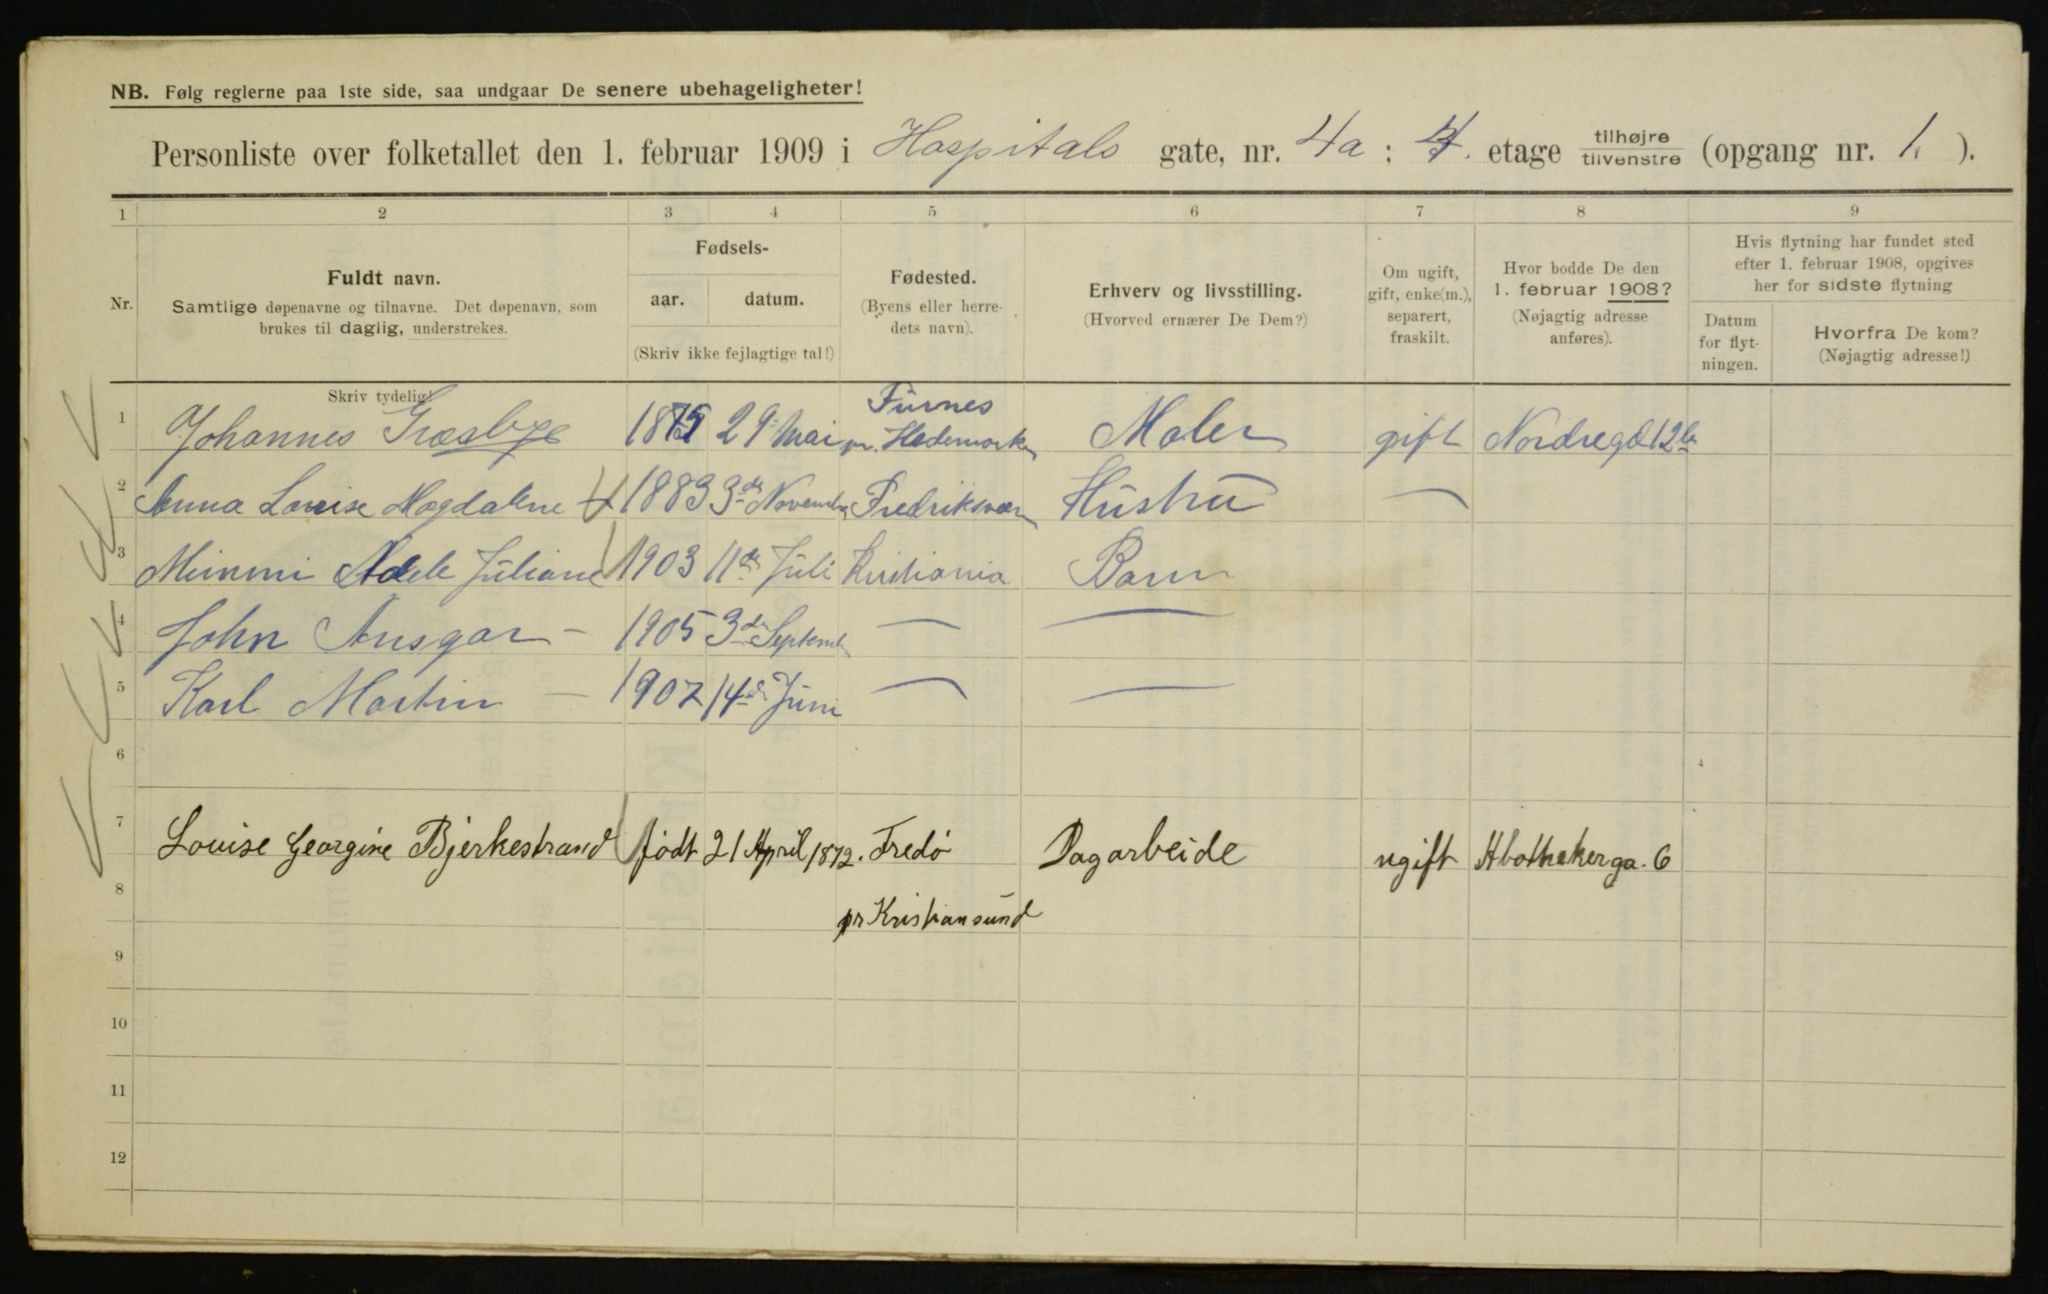 NB. Følg reglerne paa 1ste side, saa undgaar De senere ubehageligheter!
Personliste over folketallet den 1. februar 1909 i Hospitals gate, nr. 4a; 4. etage tilhøjre tilvenstre (opgang nr. 1. ).
1 2 3 4 5 6 7 8 9
Nr.
Fuldt navn.
Samtlige døpenavne og tilnavne. Det døpenavn, som
brukes til daglig, understrekes.
Fødsels-
aar. datum.
(Skriv ikke fejlagtige tal!)
Fødested.
(Byens eller herre-
dets navn).
Erhverv og livsstilling.
(Hvorved ernærer De Dem?)
Om ugift,
gift, enke(m.),
separert,
fraskilt.
Hvor bodde De den
1. februar 1908?
(Nøjagtig adresse
anføres).
Hvis flytning har fundet sted
efter 1. februar 1908, opgives
her for sidste flytning
Datum
for flyt-
ningen.
Hvorfra De kom?
(Nøjagtig adresse!)
Skriv tydelig!
1 Johannes Græsbye 1875 29 Mai Furnes pr. Hedemarken Maler gift Nordregd 12
2 Anna Louise Magdalene 1883 3de Novembr Fredriksværn Hustru —
3 Mimmi Adele Juliane 1903 11de Juli Kristiania Barn
4 John Ansgar — 1905 3de Septemb — —
5 Karl Martin — 1907 14de Juni — —
6
7 Louise Georgine Bjerkestrand født 21 April 1872. Fredø Dagarbeide ugift Abothekerga. 6
8 pr Kristiansund
9
10
11
12